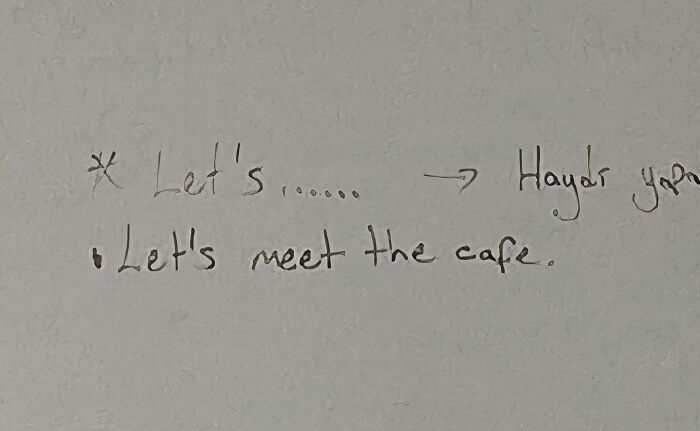 * Let's ...... → Haydi
• Let's meet the cafe.